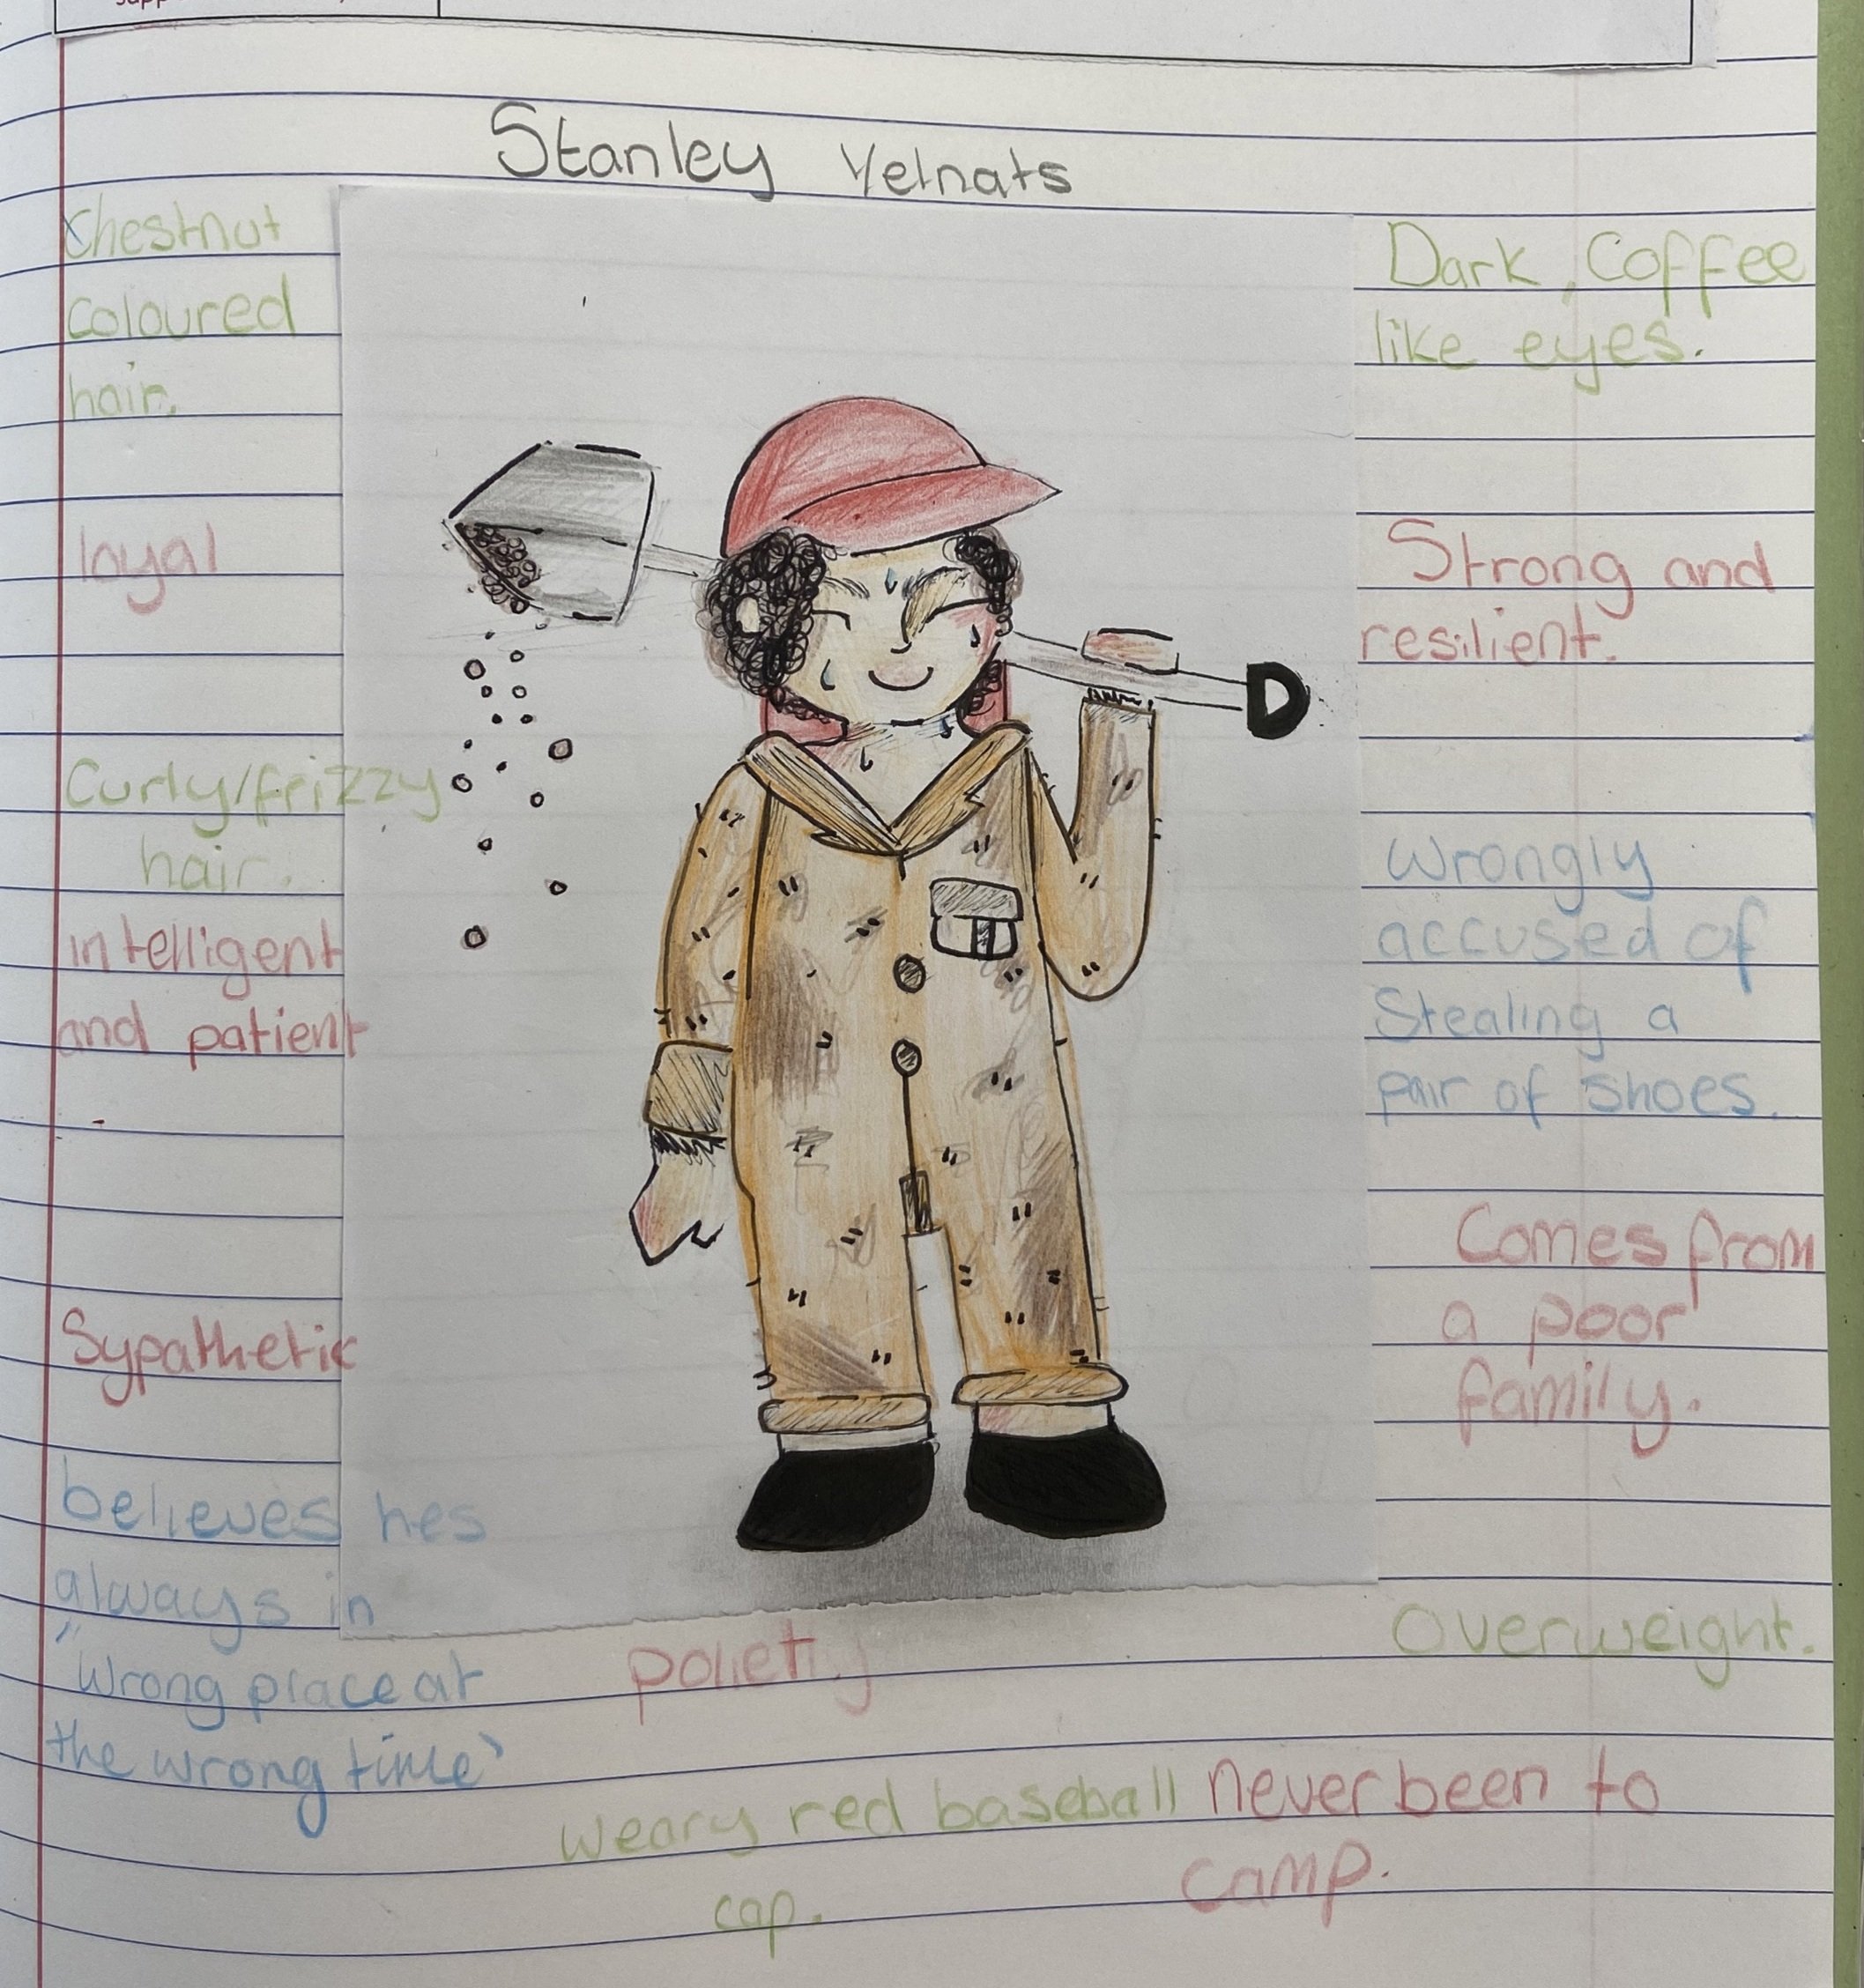 Stanley Yelnats
Chestnut
coloured
hair.
loyal
Curly/frizzy
hair.
intelligent
and patient
Sypathetic
believes hes
always in
"Wrong place at
the wrong time"
Dark, Coffee
like eyes.
Strong and
resilient.
Wrongly
accused of
Stealing a
pair of shoes.
Comes from
a poor
family.
Overweight.
weary red baseball
cap.
never been to
camp.